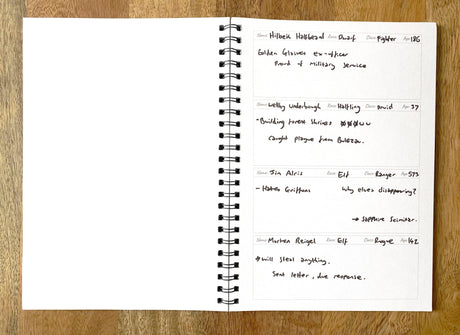 Name Hilbek Halfbead Race Dwarf Class Fighter Age 186
Golden Gloives ex-officer
Proud of Military Service
Name Welby Underbough Race Halfling Class Druid Age 37
- Building forest shrines
caught plague from Bulezau.
Name Jin Alris Elf Class Ranger Age 573
- Hates Griffons Why elves disappearing?
→ Sapphire Scimitar.
Name Morthen Reigel Race Elf Class Rogue Age 142
will steal anything.
Sent letter, due response.